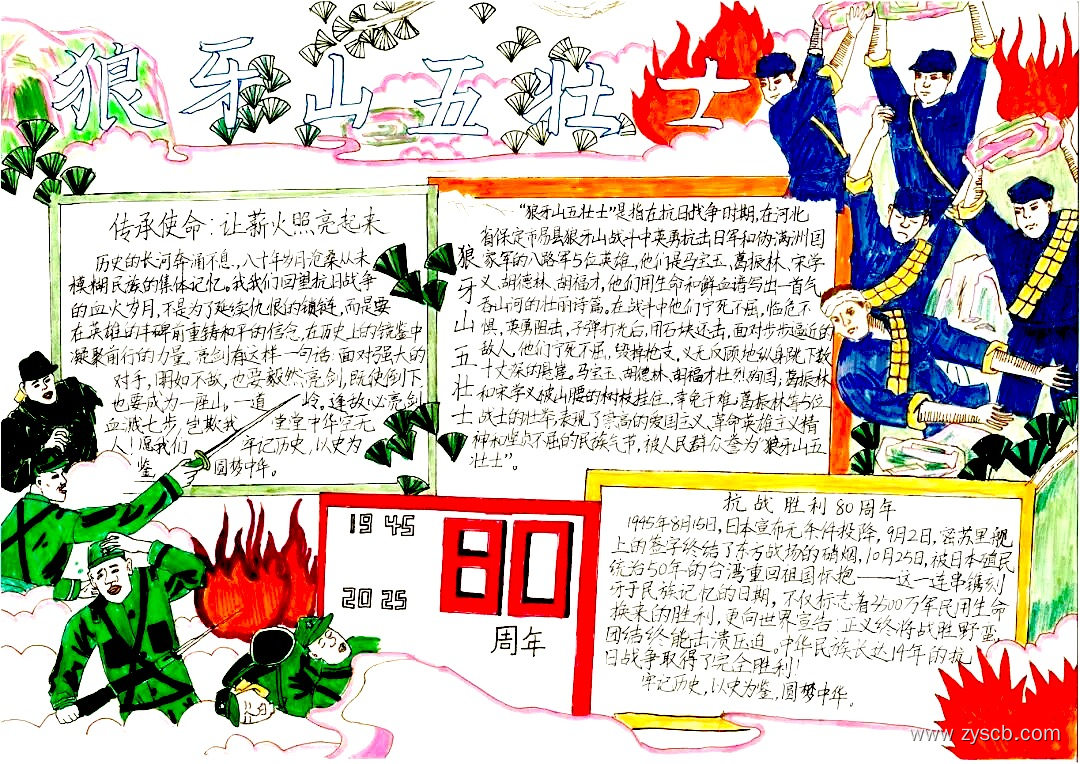 狼牙山五壮士
传承使命:让薪火照亮起来
历史的长河奔涌不息,八十年岁月沧桑从未
模糊民族的集体记忆。我我们回望抗日战争
的血火岁月,不是为了延续仇恨的锁链,而是要
在英雄的丰碑前重铸和平的信念,在历史的镜鉴中
凝聚前行的力量。亮剑有这样一句话 面对强大的
对手,明知不敌,也要毅然亮剑,既使倒下,
也要成为一座山,一道 岭。逢敌必亮剑
血溅七步,岂欺我 堂堂中华空无
人!愿我们 牢记历史,以史为
鉴, 圆梦中华。
狼牙山五壮士
“狼牙山五壮士”是指在抗日战争时期,在河北
省保定市易县狼牙山战斗中英勇抗击日军和伪满洲国
家军的八路军5位英雄,他们是马宝玉、葛振林、宋学
义、胡德林、胡福才,他们用生命和鲜血谱写出一首气
吞山河的壮丽诗篇,在战斗中他们宁死不屈,临危不
惧,英勇阻击,子弹打光后,用石块还击,面对步步逼近的
敌人,他们宁死不屈,毁掉枪支,义无反顾地纵身跳下数
十丈深的悬崖。马宝玉、胡德林、胡福才壮烈殉国;葛振林
和宋学义被山腰的树枝挂住,幸免于难。葛振林等5位
战士的壮举,表现了崇高的爱国主义、革命英雄主义精
神和坚贞不屈的民族气节,被人民群众誉为“狼牙山五
壮士”。
1945
80
2025
周年
抗战胜利80周年
1945年8月15日,日本宣布无条件投降,9月2日,密苏里舰
上的签字终结了东方战场的硝烟,10月25日,被日本殖民
统治50年的台湾重回祖国怀抱——这一连串镌刻
于民族记忆的日期,不仅标志着3500万军民用生命
换来的胜利,更向世界宣告:正义终将战胜野蛮
团结终能击溃压迫。中华民族长达14年的抗
日战争取得了完全胜利!
牢记历史,以史为鉴,圆梦中华。
www.zyscb.com